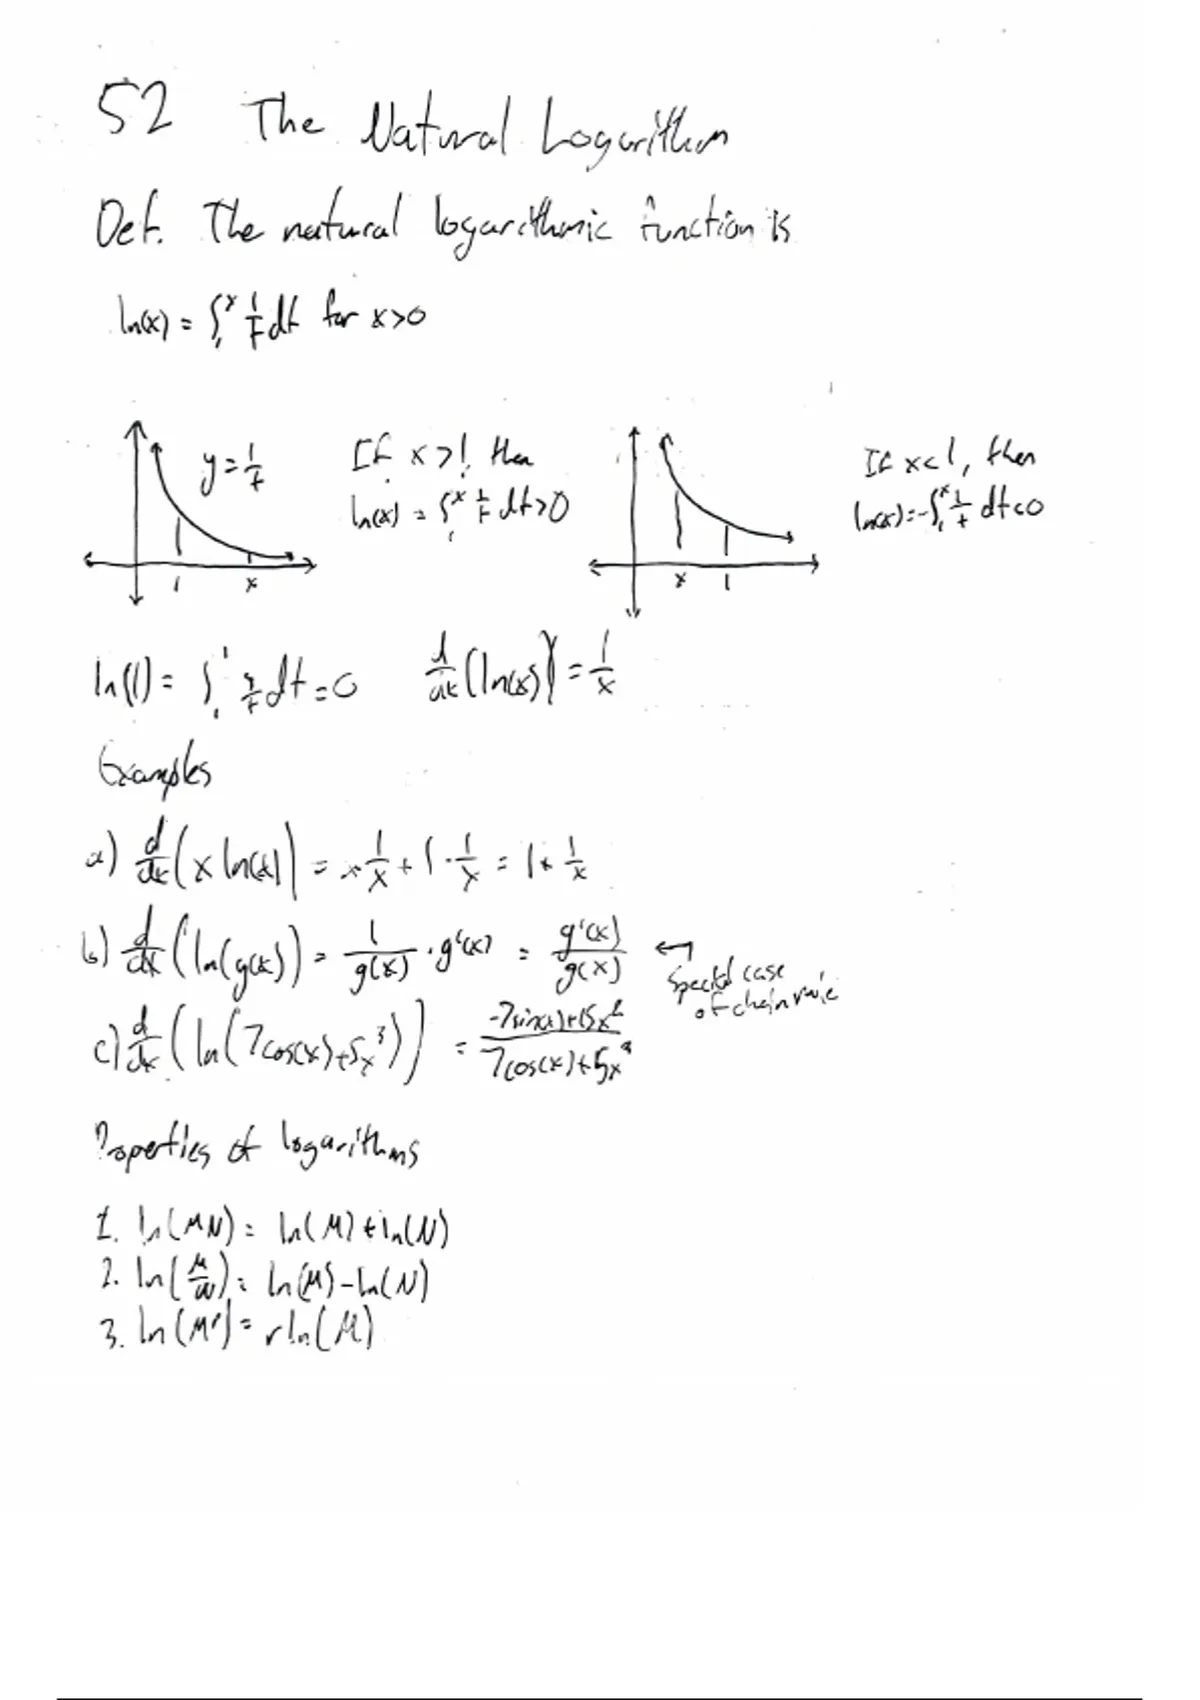 52 The Natural Logarithm
Def. The natural logarithmic function is
ln(x) = ∫₁ˣ 1/t dt for x>0
y = 1/t
If x>1, then
ln(x) = ∫₁ˣ 1/t dt>0
1 x
If x<1, then
ln(x) = -∫₁ˣ 1/t dt<0
x 1
ln(1) = ∫₁¹ 1/t dt = 0 d/dx (ln(x)) = 1/x
Examples
a) d/dx (x ln(x)) = x 1/x + 1 · 1/x = 1 + 1/x
b) d/dx (ln(g(x))) = 1/g(x) · g'(x) = g'(x)/g(x)
Special case
of chain rule
c) d/dx (ln(7cos(x)+5x³)) = -7sin(x)+15x²/7cos(x)+5x³
Properties of logarithms
1. ln(MN) = ln(M)+ln(N)
2. ln(M/N) = ln(M)-ln(N)
3. ln(Mʳ) = r ln(M)